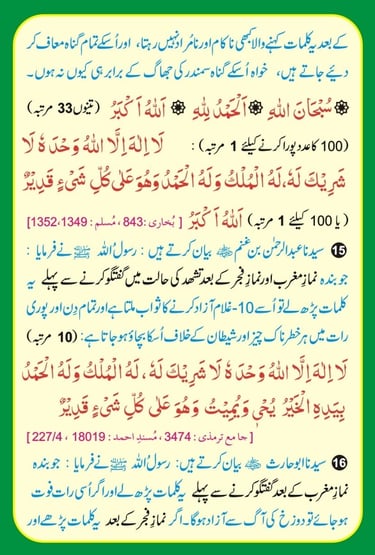 کے بعد یہ کلمات کہنے والا کبھی ناکام اور نامُراد نہیں رہتا، اور اُسکے تمام گناہ معاف کر
دیئے جاتے ہیں، خواہ اُسکے گناہ سمندر کی جھاگ کے برابر ہی کیوں نہ ہوں۔
سُبْحَانَ اللهِ اَلْحَمْدُ لِلّٰهِ اَللهُ اَكْبَرُ (تینوں 33 مرتبہ)
(100 کا عدد پورا کرنے کیلئے 1 مرتبہ) : لَا اِلٰهَ اِلَّا اللهُ وَحْدَهٗ لَا
شَرِيْكَ لَهٗ، لَهُ الْمُلْكُ وَلَهُ الْحَمْدُ وَهُوَ عَلٰى كُلِّ شَىْءٍ قَدِيْرٌ
(یا 100 کیلئے 1 مرتبہ) اَللهُ اَكْبَرُ [بُخاری : 843 ، مُسلم : 1352,1349]
15 سیدنا عبدالرحمٰن بن غنم ؓ بیان کرتے ہیں : رسولُ اللہ ﷺ نے فرمایا :
جو بندہ نمازِ مغرب اور نمازِ فجر کے بعد تشہد کی حالت میں گفتگو کرنے سے پہلے یہ
کلمات پڑھ لے تو اُسے 10-غلام آزاد کرنے کا ثواب ملتا ہے اور تمام دِن اور پوری
رات میں ہر خطرناک چیز اور شیطان کے خلاف اُسکا بچاؤ ہو جاتا ہے : (10 مرتبہ)
لَا اِلٰهَ اِلَّا اللهُ وَحْدَهٗ لَا شَرِيْكَ لَهٗ، لَهُ الْمُلْكُ وَلَهُ الْحَمْدُ
بِيَدِهِ الْخَيْرُ يُحْيٖ وَيُمِيْتُ وَهُوَ عَلٰى كُلِّ شَىْءٍ قَدِيْرٌ
[جامع ترمذی : 3474 ، مُسندِ احمد : 18019 ، 227/4]
16 سیدنا ابو حارث ؓ بیان کرتے ہیں: رسولُ اللہ ﷺ نے فرمایا : جو بندہ
نمازِ مغرب کے بعد گفتگو کرنے سے پہلے یہ کلمات پڑھ لے اور اگر اُسی رات فوت
ہو جائے تو دوزخ کی آگ سے آزاد ہوگا۔ اگر نمازِ فجر کے بعد یہ کلمات پڑھے اور